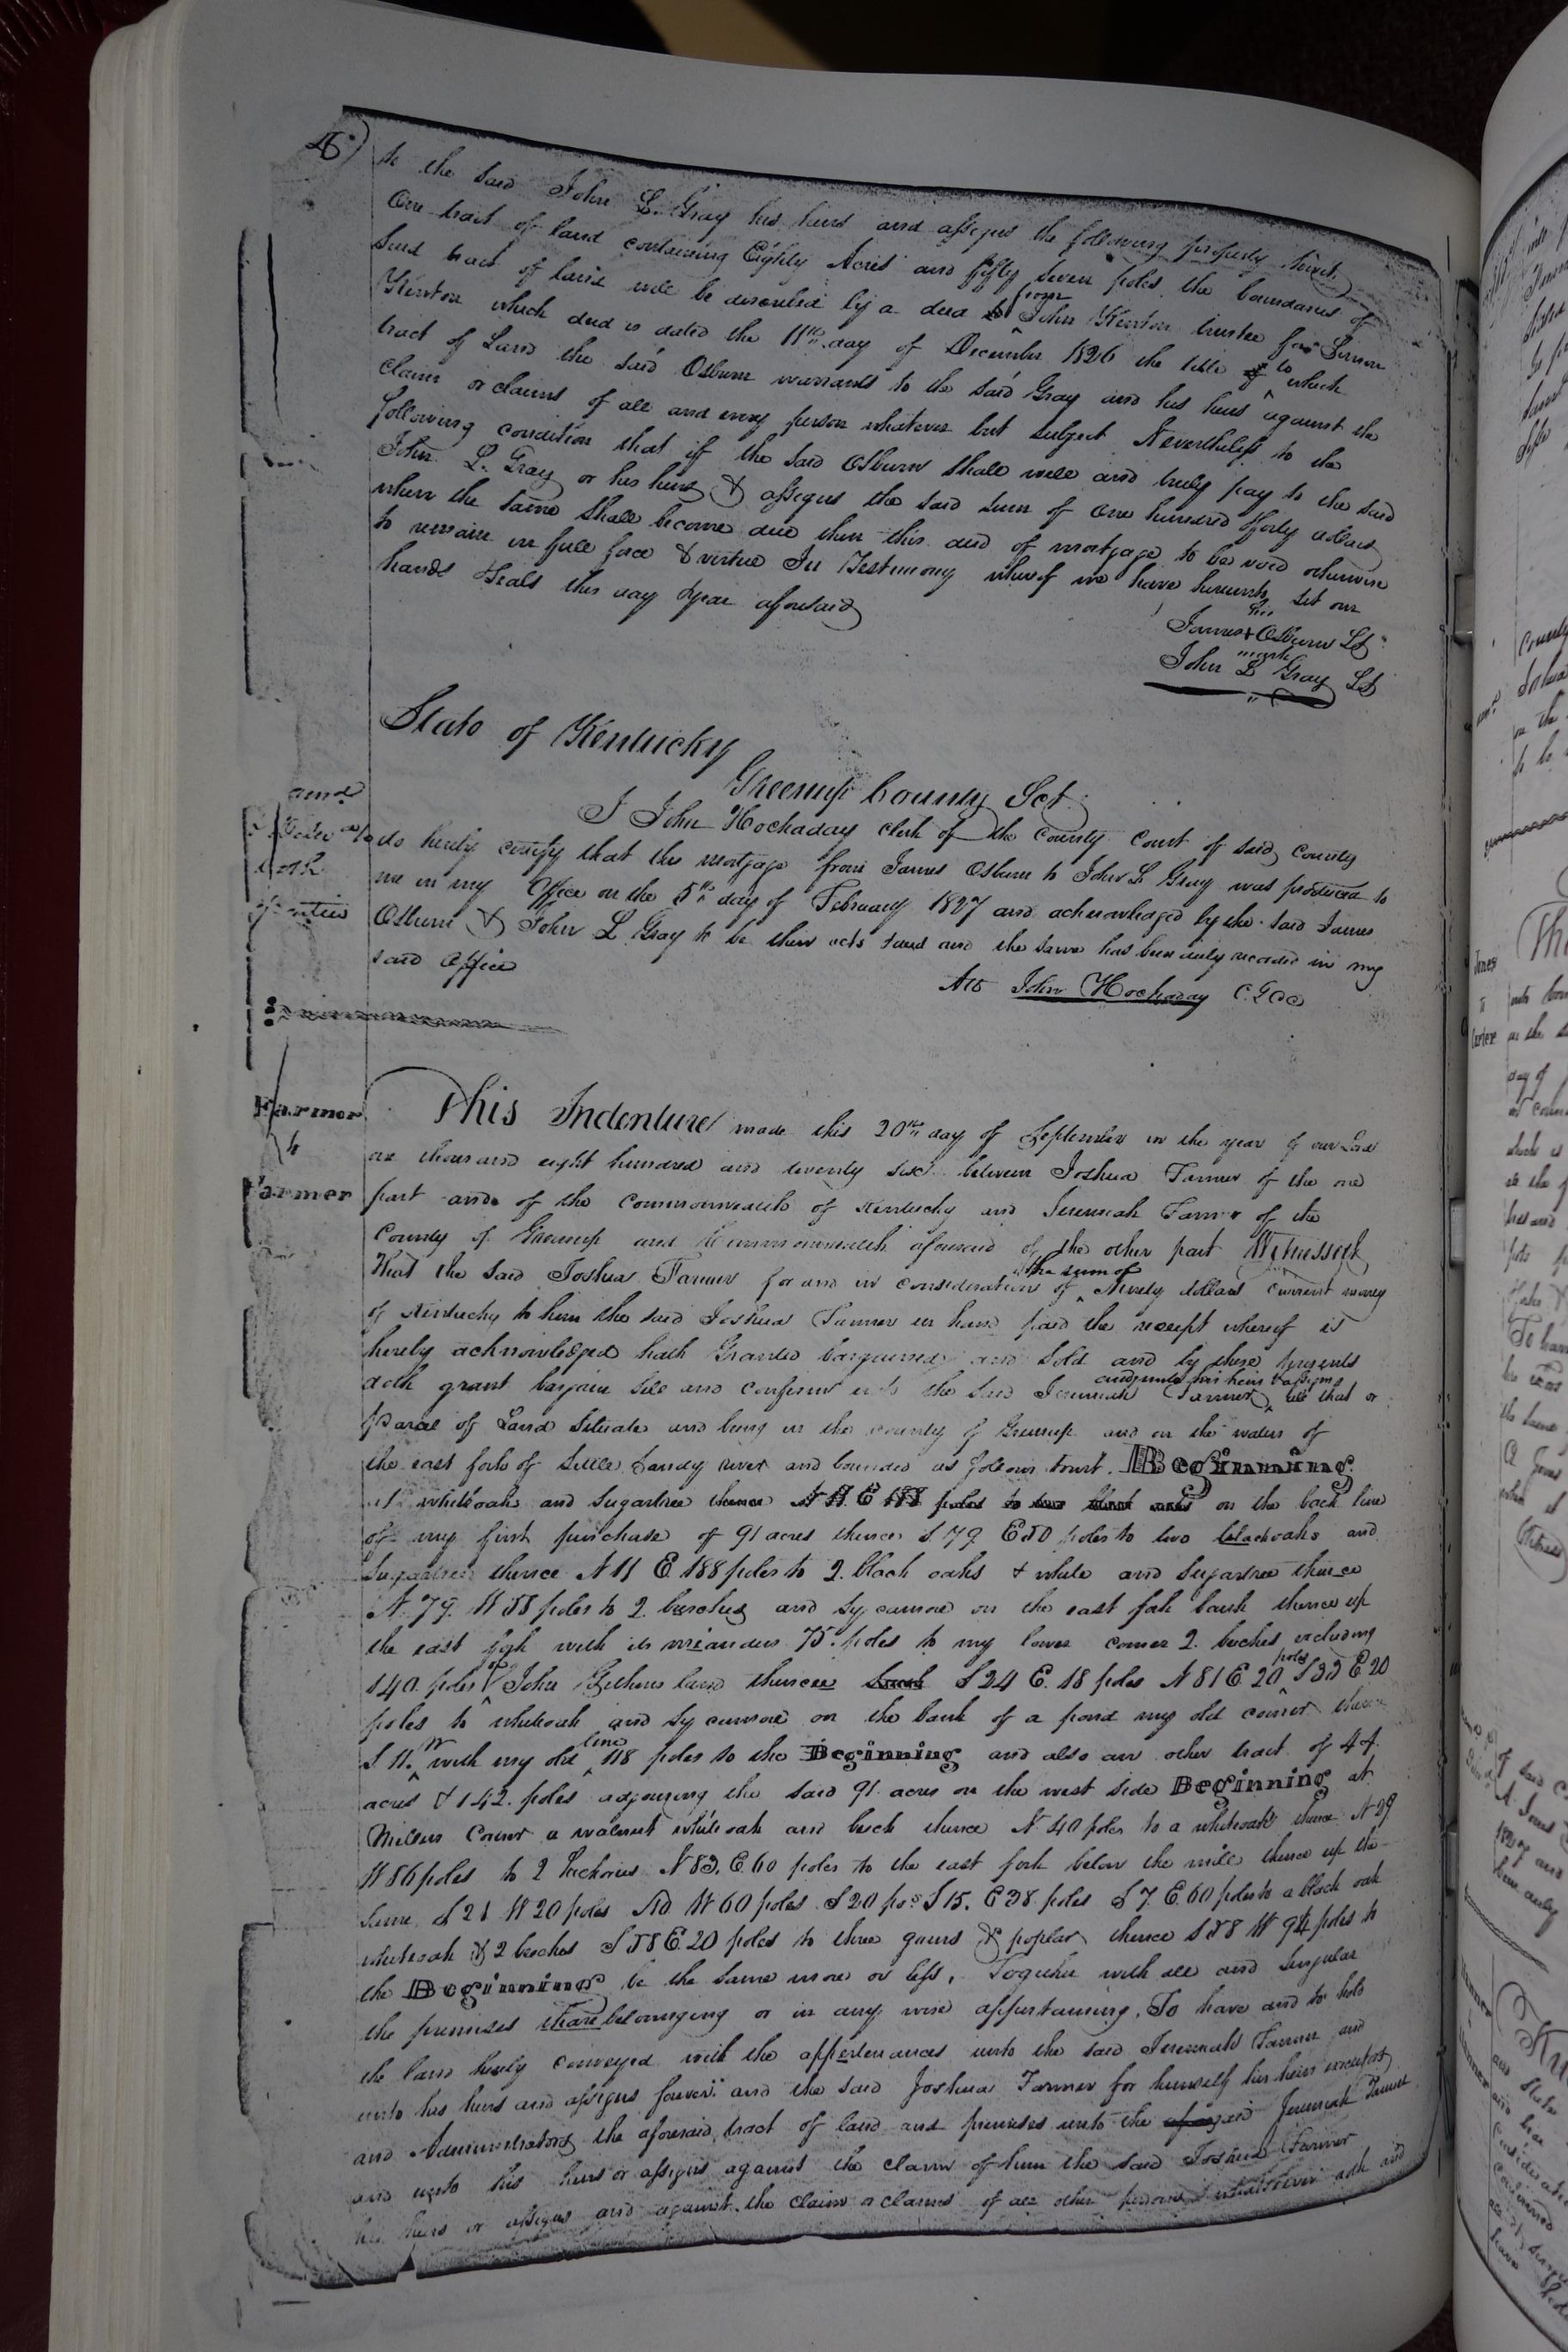 to the said John L. Gray his heirs and assigns the following property towit
One tract of land containing Eighty Acres and fifty seven poles the boundaries of
said tract of land will be described by a deed from John Kenton trustee for Simon
Kenton which deed is dated the 11th day of December 1826 the title to which
tract of Land the said Osburn warrants to the said Gray and his heirs against the
claim or claims of all and every person whatever but subject Nevertheless to the
following condition that if the said Osburn shall well and truly pay to the said
John L. Gray or his heirs & assigns the said sum of one hundred & forty dollars
when the same shall become due then this deed of mortgage to be void otherwise
to remain in full force & virtue In Testimony whereof we have hereunto set our
hands & seals this day & year aforesaid
his
James + Osburn LS
mark
John L Gray LS
State of Kentucky
Greenup County Sct
I John Hockaday clerk of the County Court of said County
do hereby certify that this mortgage from James Osburn to John L Gray was produced to
me in my Office on the 5th day of February 1827 and acknowledged by the said James
Osburn & John L Gray to be their acts & deed and the same has been duly recorded in my
said office
Att John Hockaday C.G.C.C
Farmer
to
Farmer
This Indenture made this 20th day of September in the year of our Lord
one thousand eight hundred and twenty six between Joshua Farmer of the one
part and of the commonwealth of Kentucky and Jeremiah Farmer of the
County of Greenup and Commonwealth aforesaid of the other part Witnesseth
That the said Joshua Farmer for and in consideration of the sum of Ninety dollars current money
of Kentucky to him the said Joshua Farmer in hand paid the receipt whereof is
hereby acknowledged hath Granted bargained and Sold and by these presents
doth grant bargain sell and confirm unto the said Jeremiah Farmer and unto his heirs & assigns all that or
parcel of Land Situate and being in the county of Greenup and on the waters of
the east fork of Little Sandy river and bounded as follows towit. Beginning
at whiteoak and Sugartree thence N 11. E 188 poles to two black oaks on the back line
of my first purchase of 91 acres thence S. 79 E 50 poles to two blackoaks and
Sugartree thence N 11 E 188 poles to 2. black oaks & white and Sugartree thence
N. 79. W 58 poles to 2. beeches and Sycamore on the east fork bank thence up
the east fork with its meanders 75. poles to my lower corner 2. beches excluding
140. poles of John land thence S 24 E. 18 poles N 81 E 20 poles S 33 E 20
poles to whiteoak and Sycamore on the bank of a pond my old corner thence
S 11. W with my old line 118 poles to the Beginning and also an other tract of 44
acres & 142. poles adjoining the said 91. acres on the west side Beginning at
Millers Corner a walnut whiteoak and beech thence N 40 poles to a whiteoak thence N 29
W 86 poles to 2 hickories N 83. E. 60 poles to the east fork below the mill thence up the
same S 21 W 20 poles W 60 poles S 20 pos S 15. E 38 poles S 7. E. 60 poles to a black oak
whiteoak & 2 beeches S 58 E. 20 poles to three gums & poplar thence S 58 W 94 poles to
the Beginning be the same more or less, Together with all and Singular
the premises thare belonging or in any wise appertaining. To have and to hold
the land hereby conveyed with the appertenances unto the said Jeremiah Farmer and
unto his heirs and assigns forever and the said Joshua Farmer for himself his heirs executors
and Administrators the aforesaid tract of land and premises unto the said Jeremiah Farmer
and unto his heirs or assigns against the claim of him the said Joshua Farmer
his heirs or assigns and against the claim or claims of all other persons whatsoever doth and